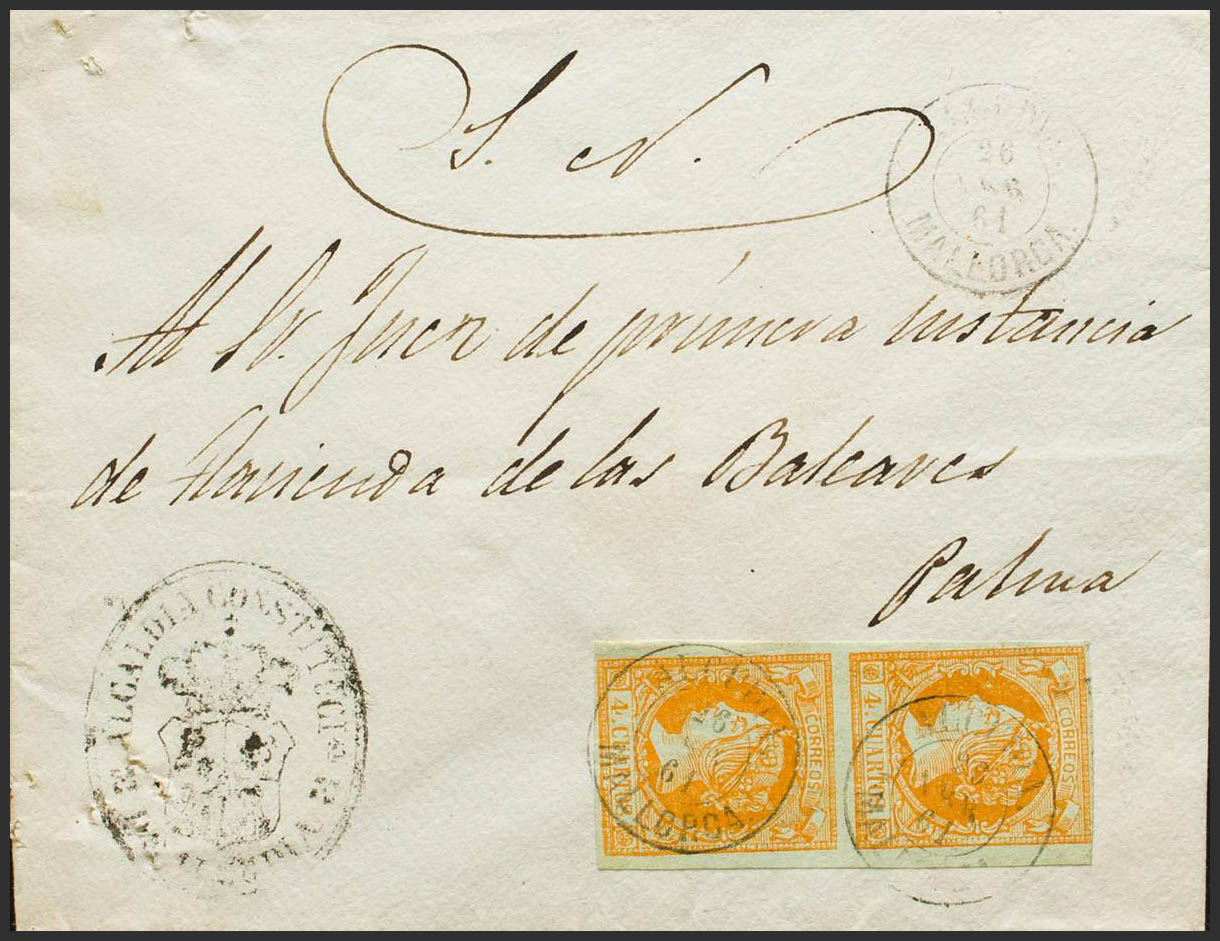 S. N.
26
AGO
61
MALLORCA.
Al Sr. Juez de primera instancia
de Hacienda de las Baleares
Palma
ALCALDIA CONSTITUCI
4. CUARTOS
CORREOS
26
61
MALLORCA.
4. CUARTOS
CORREOS
61